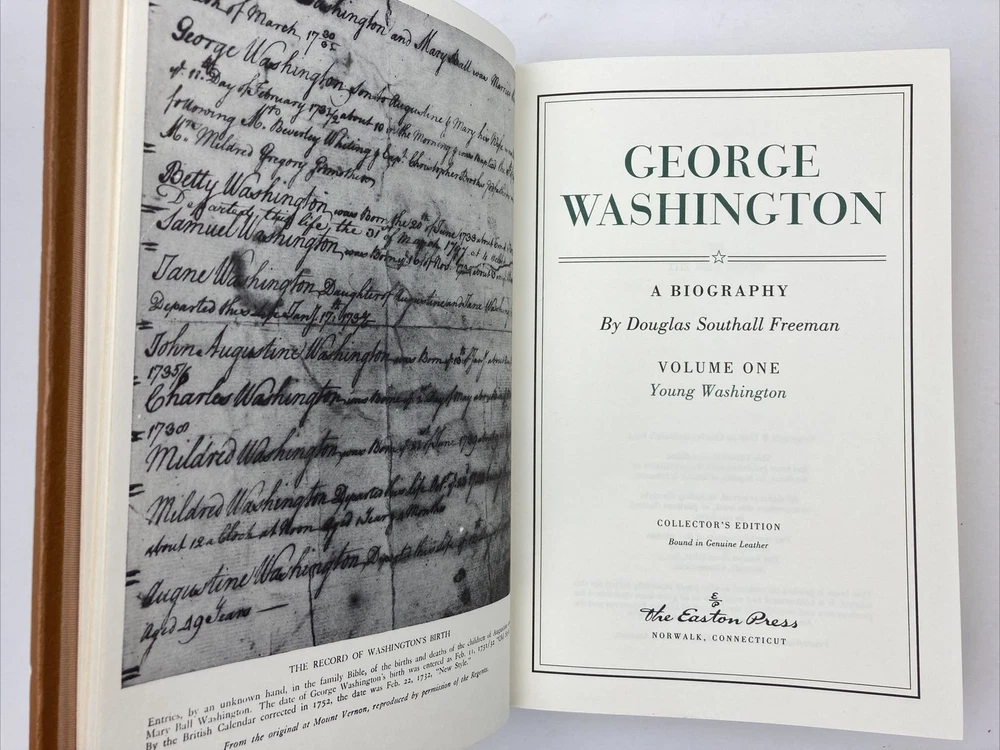 Washington and Mary Ball was Married
of March 17 30/31
George Washington Son to Augustine & Mary his Wife was
11th Day of February 1731/2 about 10 in the Morning & was Baptised the
following Mr. Beverley Whiting & Capt. Christopher Brooks
Mrs. Mildred Gregory Godmother
Betty Washington was Born the 20th of June 1733 about
Departed this life the 31 of March 1797 at 4 oclock
Samuel Washington was Born ye 16 of Nov. about
Jane Washington Daughter of Augustine and Jane Washington
Departed this Life Jany. 17th 1734/5
John Augustine Washington was Born of Jany about
1735/6
Charles Washington was Borne Day of May about
1738
Mildred Washington was Born of June 1739 about
Mildred Washington Departed this Life
about 12 a Clock at Noon Aged 1 Year 4 Months
Augustine Washington Departed this Life
Aged 49 Years
THE RECORD OF WASHINGTON'S BIRTH
Entries, by an unknown hand, in the family Bible, of the births and deaths of the children of Augustine
Mary Ball Washington. The date of George Washington's birth was entered as Feb. 11, 1731/32 "Old
By the British Calendar corrected in 1752, the date was Feb. 22, 1732, "New Style."
From the original at Mount Vernon, reproduced by permission of the Regents.
GEORGE
WASHINGTON
A BIOGRAPHY
By Douglas Southall Freeman
VOLUME ONE
Young Washington
COLLECTOR'S EDITION
Bound in Genuine Leather
The Easton Press
NORWALK, CONNECTICUT